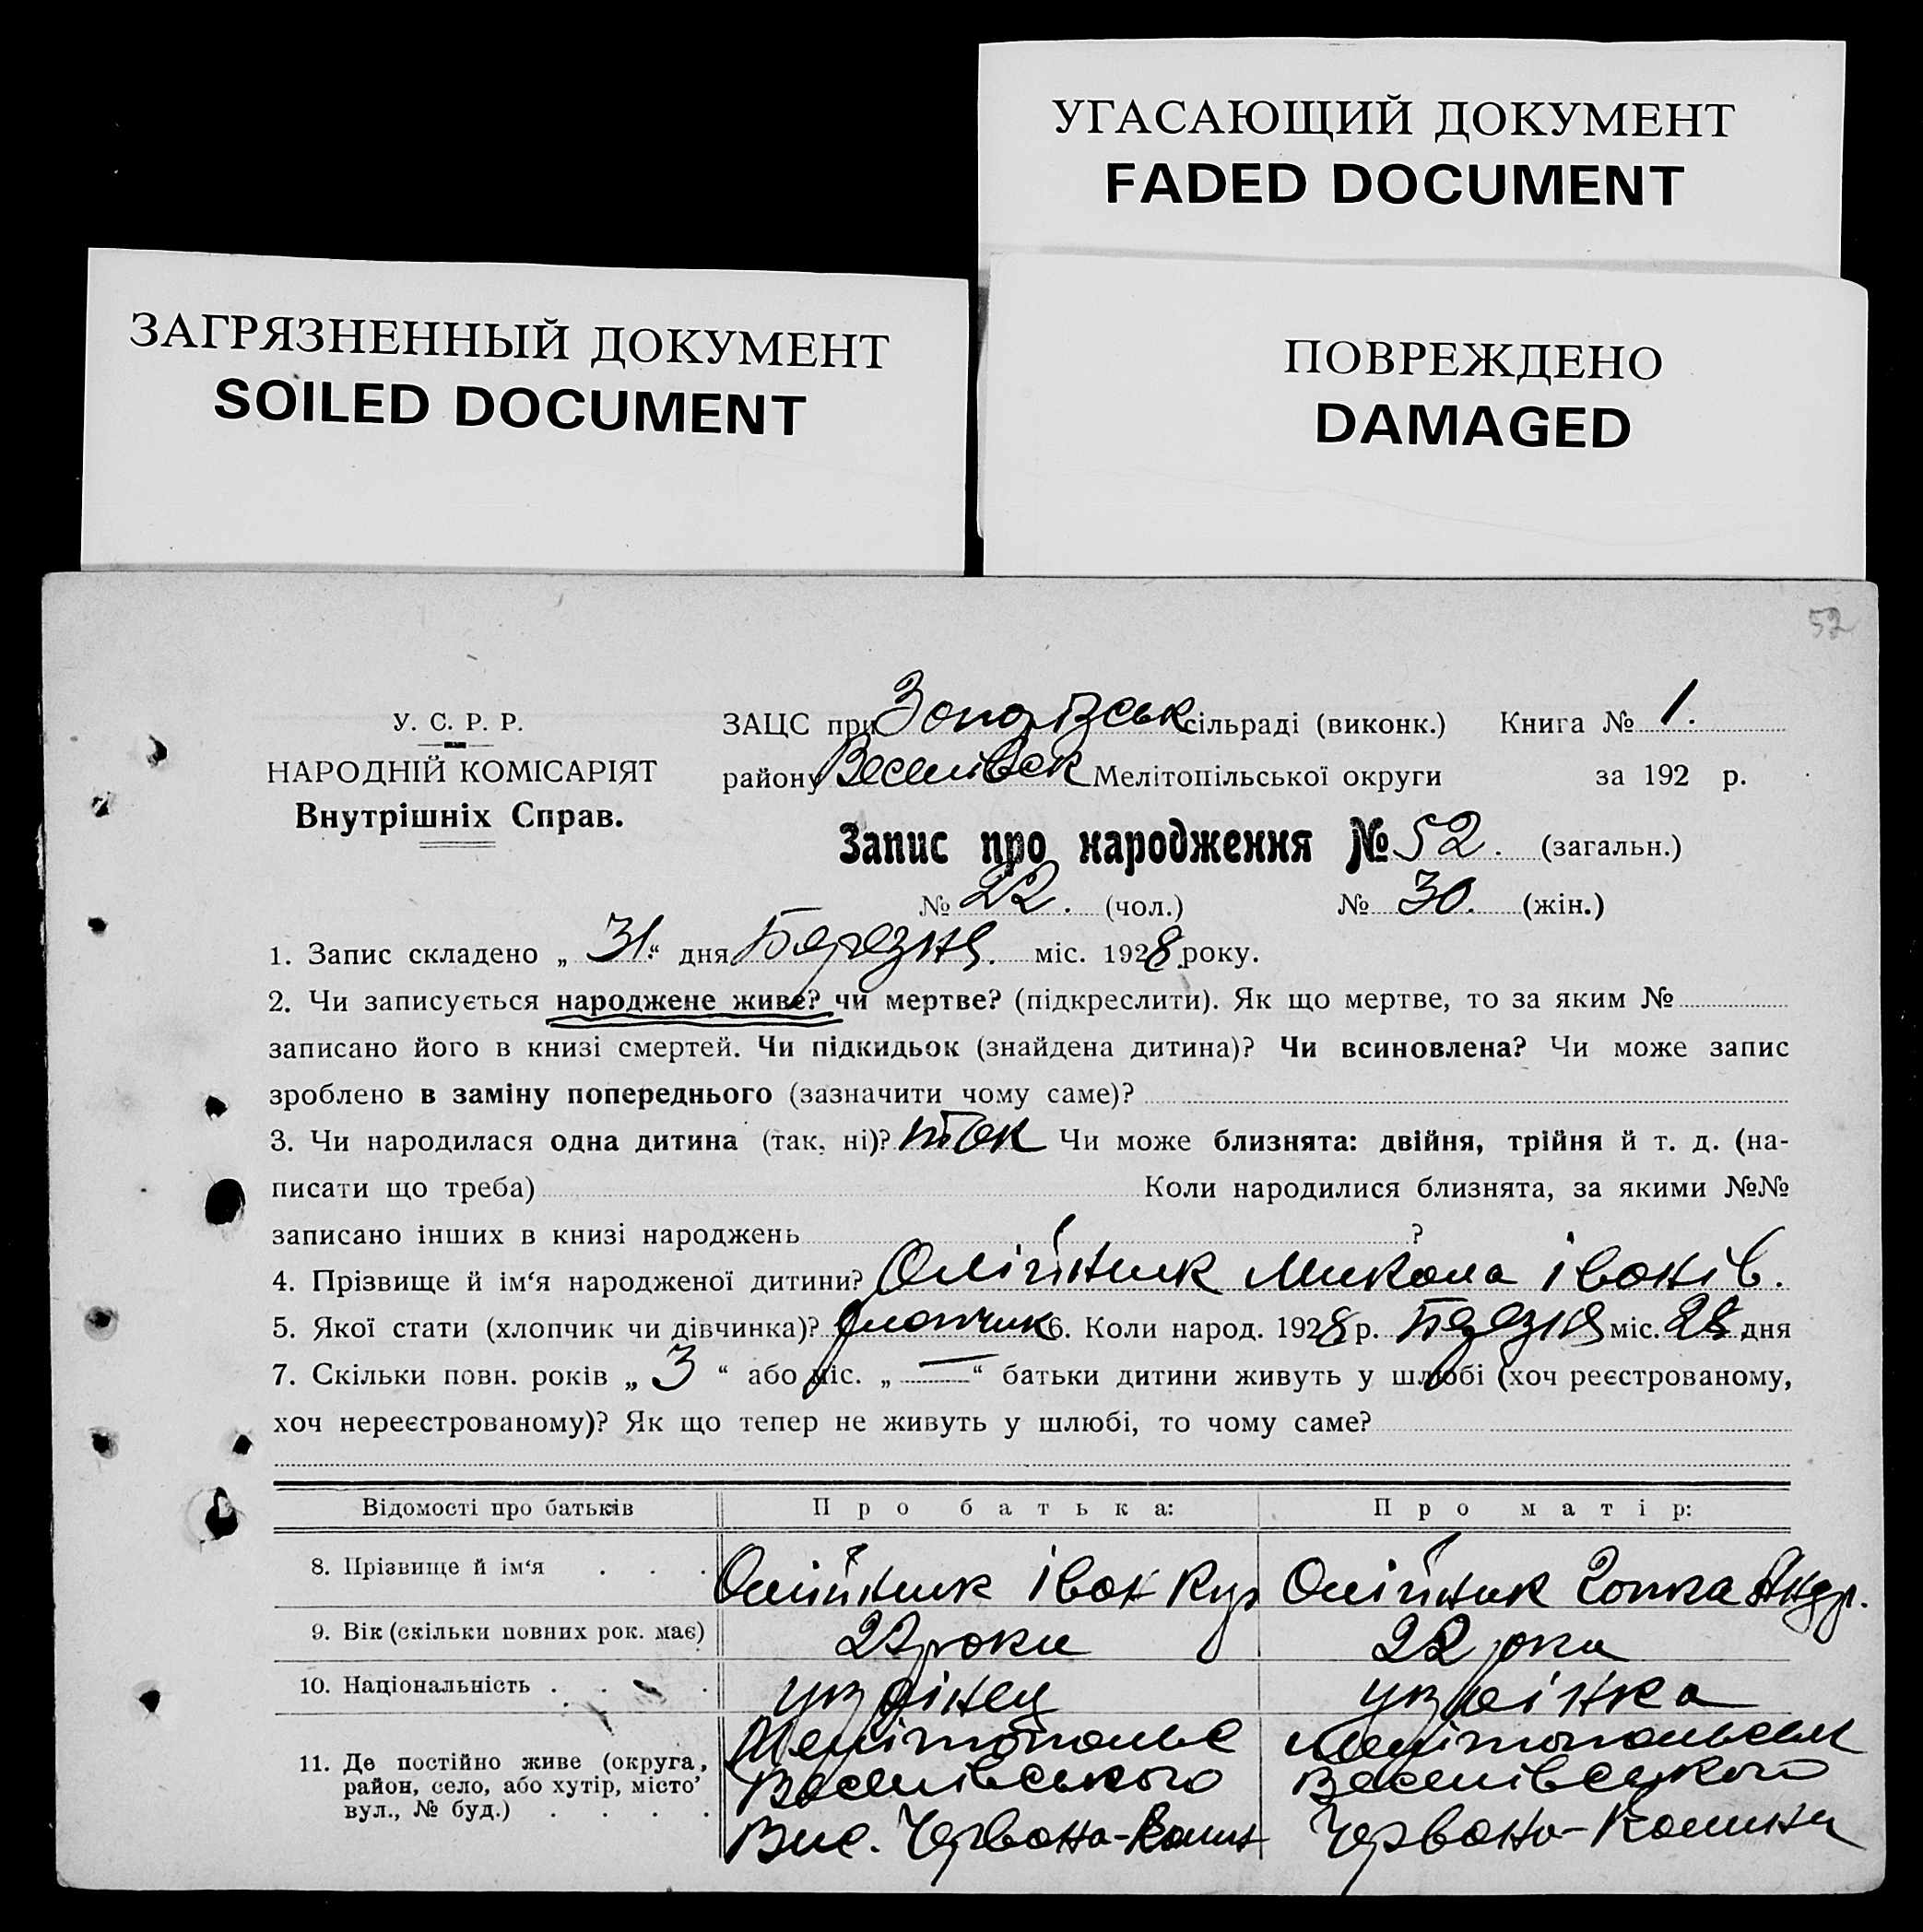 УГАСАЮЩИЙ ДОКУМЕНТ
FADED DOCUMENT
ЗАГРЯЗНЕННЫЙ ДОКУМЕНТ
SOILED DOCUMENT
ПОВРЕЖДЕНО
DAMAGED
52
У. С. Р. Р.
НАРОДНІЙ КОМІСАРІЯТ
Внутрішніх Справ.
ЗАЦС при сільраді (виконк.) Книга № 1.
району Веселівськ Мелітопільської округи за 192 р.
Запис про народження № 52. (загальн.)
№ 22. (чол.) № 30. (жін.)
1. Запис складено „ 31 “ дня Березня. міс. 1928 року.
2. Чи записується народжене живе? чи мертве? (підкреслити). Як що мертве, то за яким №
записано його в книзі смертей. Чи підкидьок (знайдена дитина)? Чи всиновлена? Чи може запис
зроблено в заміну попереднього (зазначити чому саме)?
3. Чи народилася одна дитина (так, ні)? так Чи може близнята: двійня, трійня й т. д. (на-
писати що треба) Коли народилися близнята, за якими №№
записано інших в книзі народжень ?
4. Прізвище й ім‘я народженої дитини? Олійник Микола Іванів.
5. Якої стати (хлопчик чи дівчинка)? хлопчик 6. Коли народ. 1928 р. Березня міс. 28 дня
7. Скільки повн. років „ 3 “ або міс. „ — “ батьки дитини живуть у шлюбі (хоч реєстрованому,
хоч нереєстрованому)? Як що тепер не живуть у шлюбі, то чому саме?
Відомості про батьків Про батька: Про матір:
8. Прізвище й ім‘я . . . Олійник Іван Олійник Андр.
9. Вік (скільки повних рок. має) 22 роки 22 роки
10. Національність . . . українец українка
11. Де постійно живе (округа, район, село, або хутір, місто’ вул., № буд.) . . . .
Мелітопольс Мелітопольськ
Веселівського Веселівського
Вис. Червона-
Червоно-